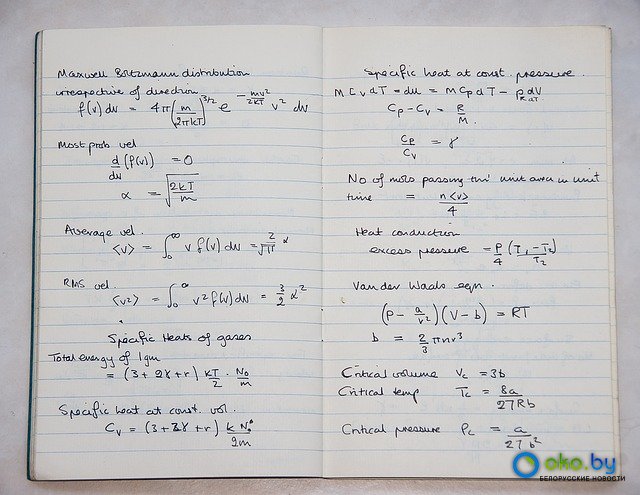 Maxwell Boltzmann distribution
irrespective of direction
f(v) dv = 4π(m/2πkT)^3/2 e^-mv²/2kT v² dv
Most prob vel
d/dv (f(v)) = 0
α = √(2kT/m)
Average vel.
<v> = ∫₀^∞ v f(v) dv = 2/√π α
RMS vel.
<v²> = ∫₀^∞ v² f(v) dv = 3/2 α²
Specific Heats of gases
Total energy of 1gm
= (3 + 2γ + r) kT/2 · N₀/m
Specific heat at const. vol.
Cv = (3 + 2γ + r) k N₀/2m
Specific heat at const. pressure.
M Cv dT = du = M Cp dT − p dV
R dT
Cp − Cv = R/M.
Cp/Cv = γ
No of mols passing thro' unit area in unit
time = n<v>/4
Heat conduction
excess pressure = P/4 (T₁ − T₂)/T₂
Van der Waals eqn.
(P − a/v²)(V − b) = RT
b = 2/3 π n r³
Critical volume Vc = 3b
Critical temp Tc = 8a/27Rb
Critical pressure Pc = a/27b²
oko.by
БЕЛОРУССКИЕ НОВОСТИ